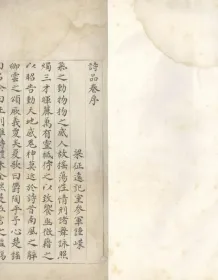 詩品卷序
梁征遠記室參軍鍾嶸
氣之動物物之感人故搖蕩性情形諸舞詠照
燭三才暉麗萬有靈祇待之以致饗幽微藉之
以昭告動天地感鬼神莫近於詩昔南風之辭
卿雲之頌厥義夐矣夏歌曰鬱陶乎心楚謠